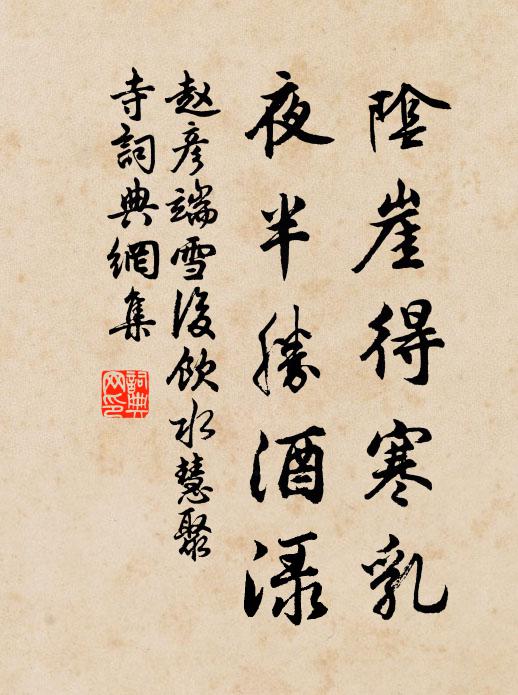 陰崖得寒乳
夜半勝酒渌
赵彦端雪後飲水慧聚
寺詞典網集
詞典網印